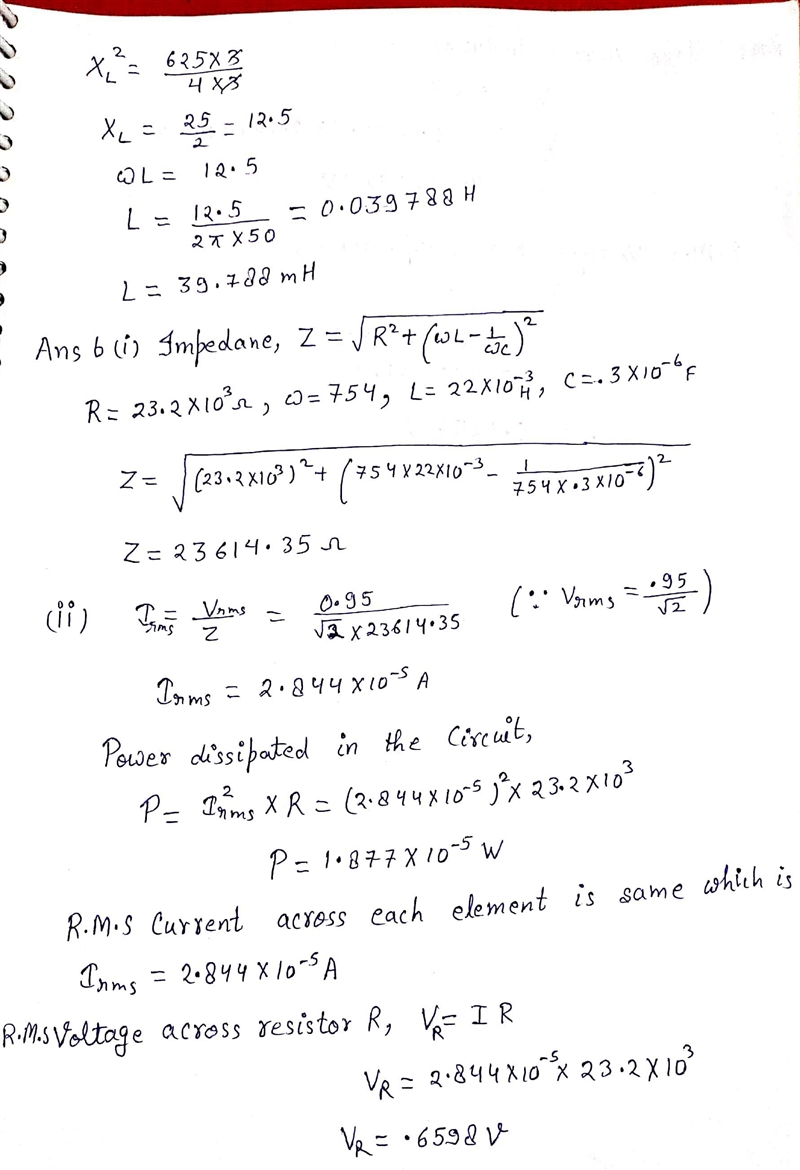 X_L² = 625×3 / 4×3
X_L = 25/2 = 12.5
ωL = 12.5
L = 12.5 / 2π×50 = 0.039788 H
L = 39.788 mH
Ans 6 (i) Impedane, Z = √(R² + (ωL - 1/ωc)²)
R = 23.2×10³ Ω, ω = 754, L = 22×10⁻³ H, C = .3×10⁻⁶ F
Z = √((23.2×10³)² + (754×22×10⁻³ - 1/(754×.3×10⁻⁶))²)
Z = 23614.35 Ω
(ii) Irms = Vrms/Z = 0.95 / √2×23614.35 (∵ Vrms = .95/√2)
Irms = 2.844×10⁻⁵ A
Power dissipated in the Circuit,
P = I²rms × R = (2.844×10⁻⁵)² × 23.2×10³
P = 1.877×10⁻⁵ W
R.M.S Current across each element is same which is
Irms = 2.844×10⁻⁵ A
R.M.S Voltage across resistor R, V_R = IR
V_R = 2.844×10⁻⁵ × 23.2×10³
V_R = .6598 V